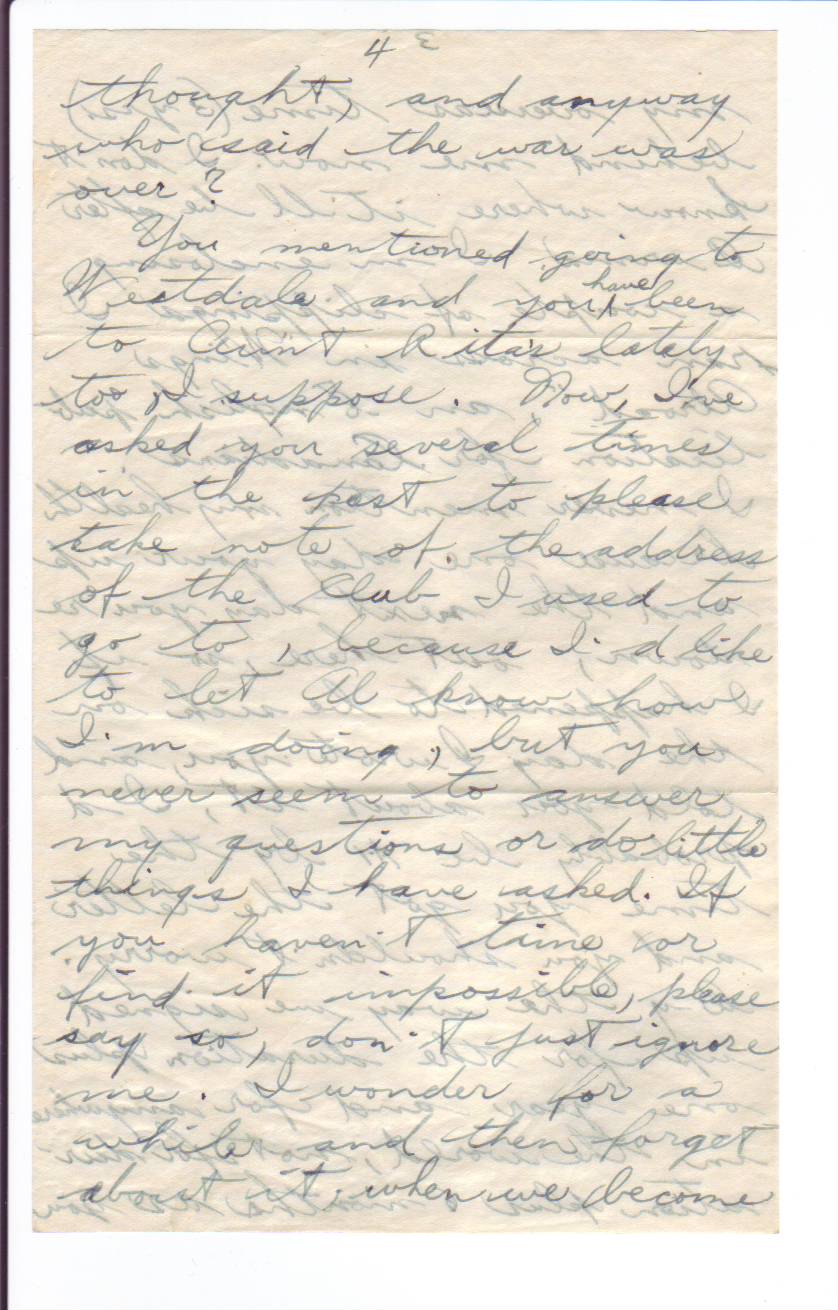 4
thought, and anyway
who said the war was
over?
You mentioned going to
Westdale and you have been
to Aunt Rita's lately
too, I suppose. Now, I've
asked you several times
in the past to please
take note of the address
of the Club I used to
go to, because I'd like
to let Al know how
I'm doing, but you
never seem to answer
my questions or do little
things I have asked. If
you haven't time or
find it impossible, please
say so, don't just ignore
me. I wonder for a
while and then forget
about it, when we become